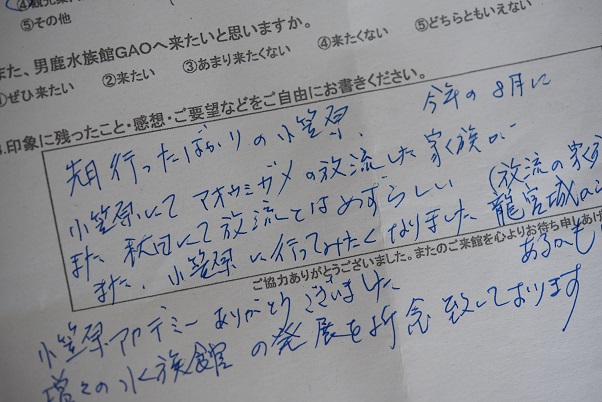 ⑤その他
また、男鹿水族館GAOへ来たいと思いますか。
①ぜひ来たい ②来たい ③あまり来たくない ④来たくない ⑤どちらともいえない
印象に残ったこと・感想・ご要望などをご自由にお書きください。
先月行ったばかりの小笠原、今年の8月に
小笠原にてアオウミガメの放流した家族が…
また、秋田にて放流とはめずらしい
また、小笠原に行ってみたくなりました(放流の家
龍宮城の
あるかも
ご協力ありがとうございました。またのご来館を心よりお待ち申しあげ
小笠原アカデミーありがとうございました
増々の水族館の発展をお祈念致しております